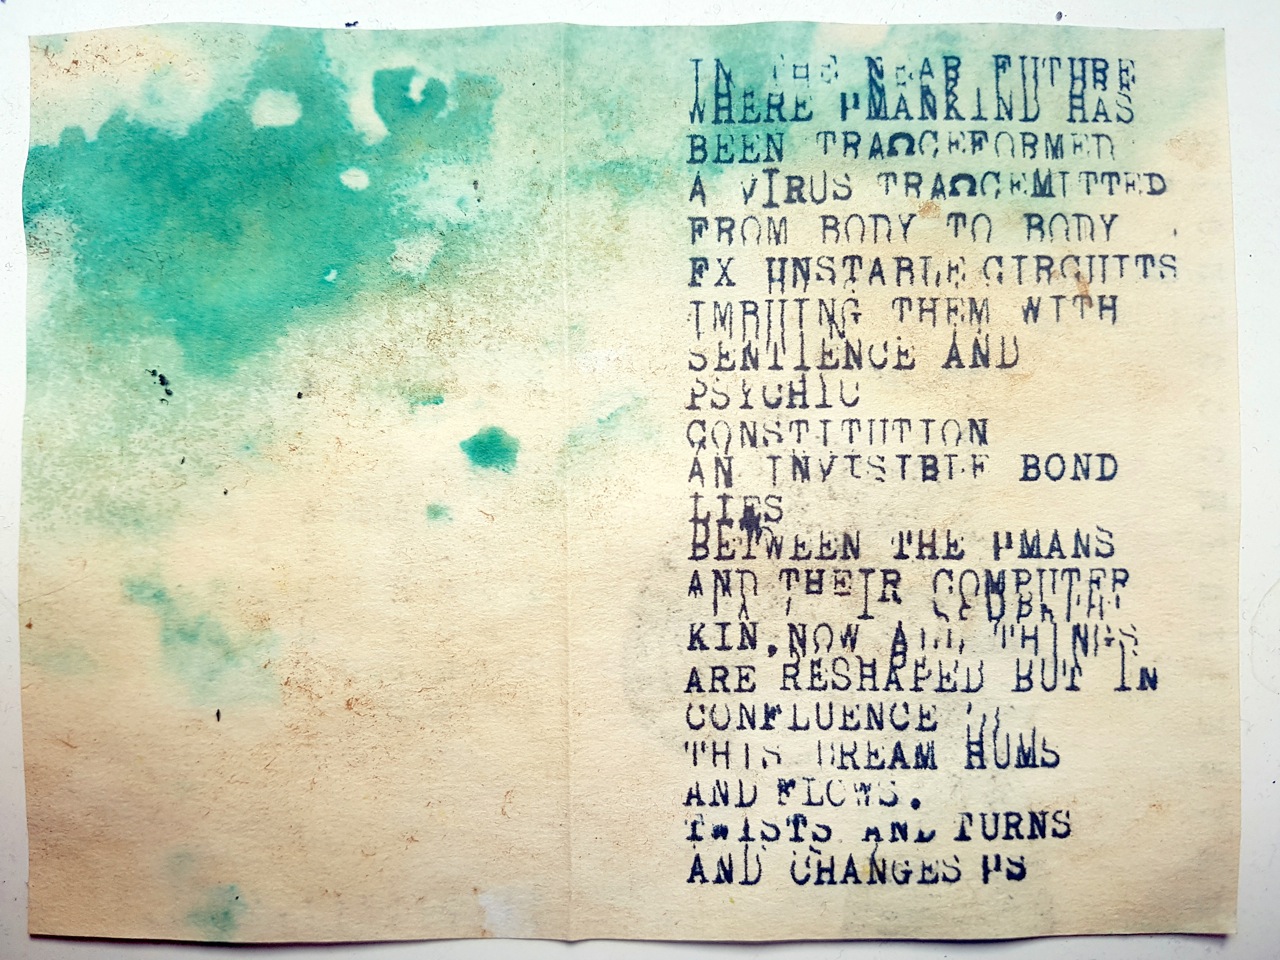 IN THE NEAR FUTURE
WHERE µMANKIND HAS
BEEN TRAΩCEFORMED
A VIRUS TRAΩCEMITTED
FROM BODY TO BODY
FX UNSTABLE CIRCUITS
IMBUING THEM WITH
SENTIENCE AND
PSYCHIC
CONSTITUTION
AN INVISIBLE BOND
LIES
BETWEEN THE µMANS
AND THEIR COMPUTER
KIN, NOW ALL THINGS
ARE RESHAPED BUT IN
CONFLUENCE
THIS DREAM HUMS
AND FLOWS.
TWISTS AND TURNS
AND CHANGES µS